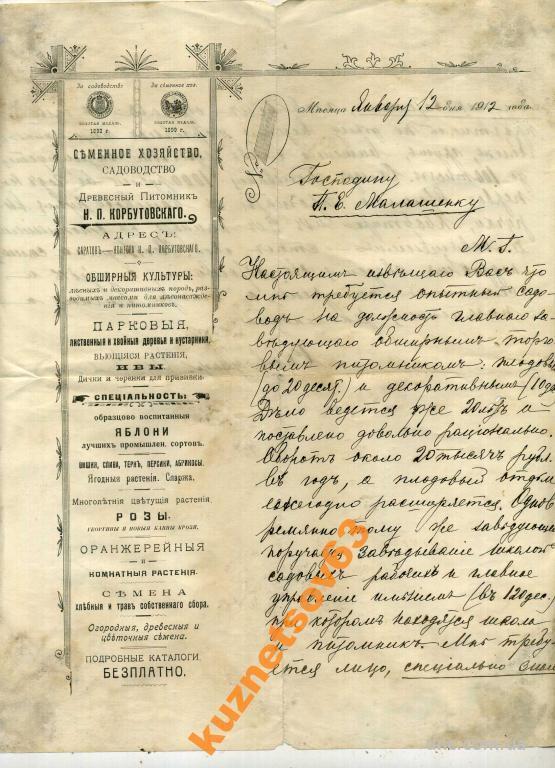 За садоводство
ЗОЛОТАЯ МЕДАЛЬ.
1892 г.
За сѣменное хоз.
ЗОЛОТАЯ МЕДАЛЬ.
1899 г.
СѢМЕННОЕ ХОЗЯЙСТВО,
САДОВОДСТВО
и
Древесный Питомникъ
Н. П. КОРБУТОВСКАГО.
АДРЕСЪ:
САРАТОВЪ—КОНТОРА Н. П. КОРБУТОВСКАГО.
ОБШИРНЫЯ КУЛЬТУРЫ:
лѣсныхъ и декоративныхъ породъ, раз-
водимыхъ массами для лѣсонасажде-
нія и питомниковъ.
ПАРКОВЫЯ,
лиственныя и хвойныя деревья и кустарники.
ВЬЮЩІЯСЯ РАСТЕНІЯ,
ИВЫ.
Дички и черенки для прививки.
СПЕЦІАЛЬНОСТЬ:
образцово воспитанныя
ЯБЛОНИ
лучшихъ промышлен. сортовъ.
ВИШНИ, СЛИВЫ, ТЕРНЪ, ПЕРСИКИ, АБРИКОСЫ.
Ягодныя растенія. Спаржа.
Многолѣтнія цвѣтущія растенія.
РОЗЫ.
ГЕОРГИНЫ И НОВЫЯ КАННЫ КРОЗИ.
ОРАНЖЕРЕЙНЫЯ
и
КОМНАТНЫЯ РАСТЕНІЯ.
СѢМЕНА
хлѣбныя и травъ собственнаго сбора.
Огородныя, древесныя и
цвѣточныя сѣмена.
ПОДРОБНЫЕ КАТАЛОГИ
БЕЗПЛАТНО.
№
Мѣсяца Января 12 дня 1912 года.
Господину
П. Е. Малашенку
М. Г.
Настоящимъ извѣщаю Васъ что
мнѣ требуется опытный садо-
водъ на должность главнаго за-
вѣдующаго обширнымъ торго-
вымъ питомникомъ: плодовы
(до 20 десят.) и декоративнымъ (10 де
Дѣло ведется уже 20 лѣтъ и
поставлено довольно раціонально.
Оборотъ около 20 тысячъ рубл.
въ годъ, а плодовый отдѣл
ежегодно расширяется. Однов
ременно тому же завѣдующе
поручаю завѣдываніе школой
садовыхъ рабочихъ и главное
управленіе имѣніемъ (въ 120 дес.)
при которомъ находятся школа
и питомникъ. Мнѣ требу
ется лицо, спеціально
kuznetsov63